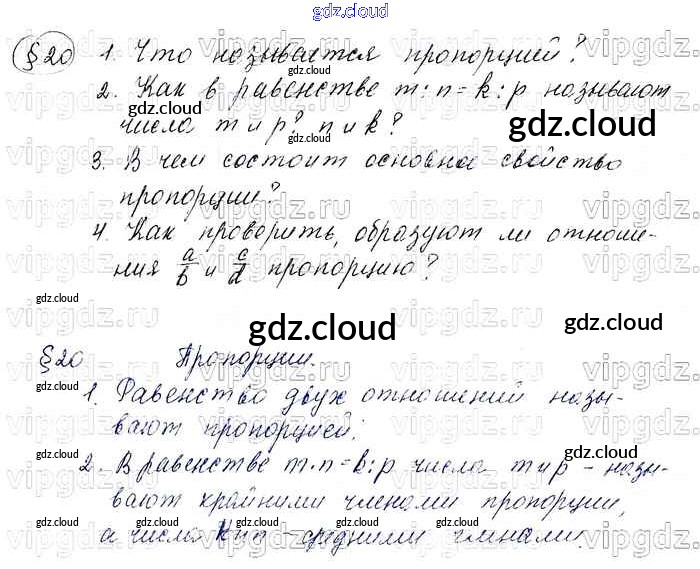 gdz.cloud
§20 1. Что называется пропорцией?
2. Как в равенстве m:n=k:p называют
числа m и p? n и k?
3. В чем состоит основна свойство
пропорции?
4. Как проворить, образуют ли отноше-
ния a/b и c/d пропорцию?
gdz.cloud
§20 Пропорции.
1. Равенство двух отношений назы-
вают пропорцией.
2. В равенстве m:n=k:p числа m и p – назы-
вают крайними членами пропорции,
а числа k и n – средними членами.